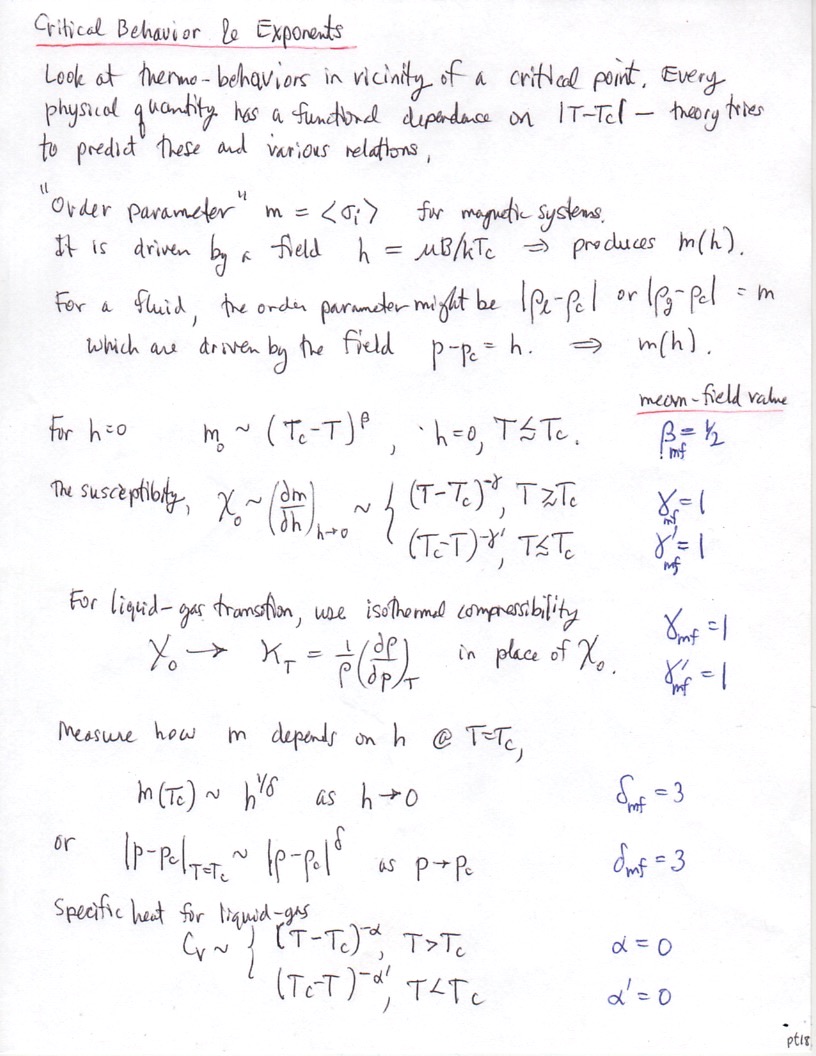 Critical Behavior & Exponents
Look at thermo-behaviors in vicinity of a critical point. Every
physical quantity has a functional dependance on |T-Tc| — theory tries
to predict these and various relations,
"Order parameter" m = <σi> for magnetic systems.
It is driven by a field h = μB/kTc ⇒ produces m(h).
For a fluid, the order parameter might be |ρl-ρc| or |ρg-ρc| = m
which are driven by the field p-pc = h. ⇒ m(h).
mean-field value
For h=0 m₀ ~ (Tc-T)^β, h=0, T≲Tc. βmf = 1/2
The susceptibity, χ₀ ~ (∂m/∂h)h→0 ~ { (T-Tc)^-γ, T≳Tc γmf = 1
(Tc-T)^-γ', T≲Tc γ'mf = 1
For liquid-gas transition, use isothermal compressibility
χ₀ → κT = 1/ρ (∂ρ/∂p)T in place of χ₀. γmf = 1
γ'mf = 1
Measure how m depends on h @ T=Tc,
m(Tc) ~ h^1/δ as h→0 δmf = 3
or |p-pc|T=Tc ~ |ρ-ρc|^δ as p→pc δmf = 3
Specific heat for liquid-gas
Cv ~ { (T-Tc)^-α, T>Tc α = 0
(Tc-T)^-α', T<Tc α' = 0
pt18